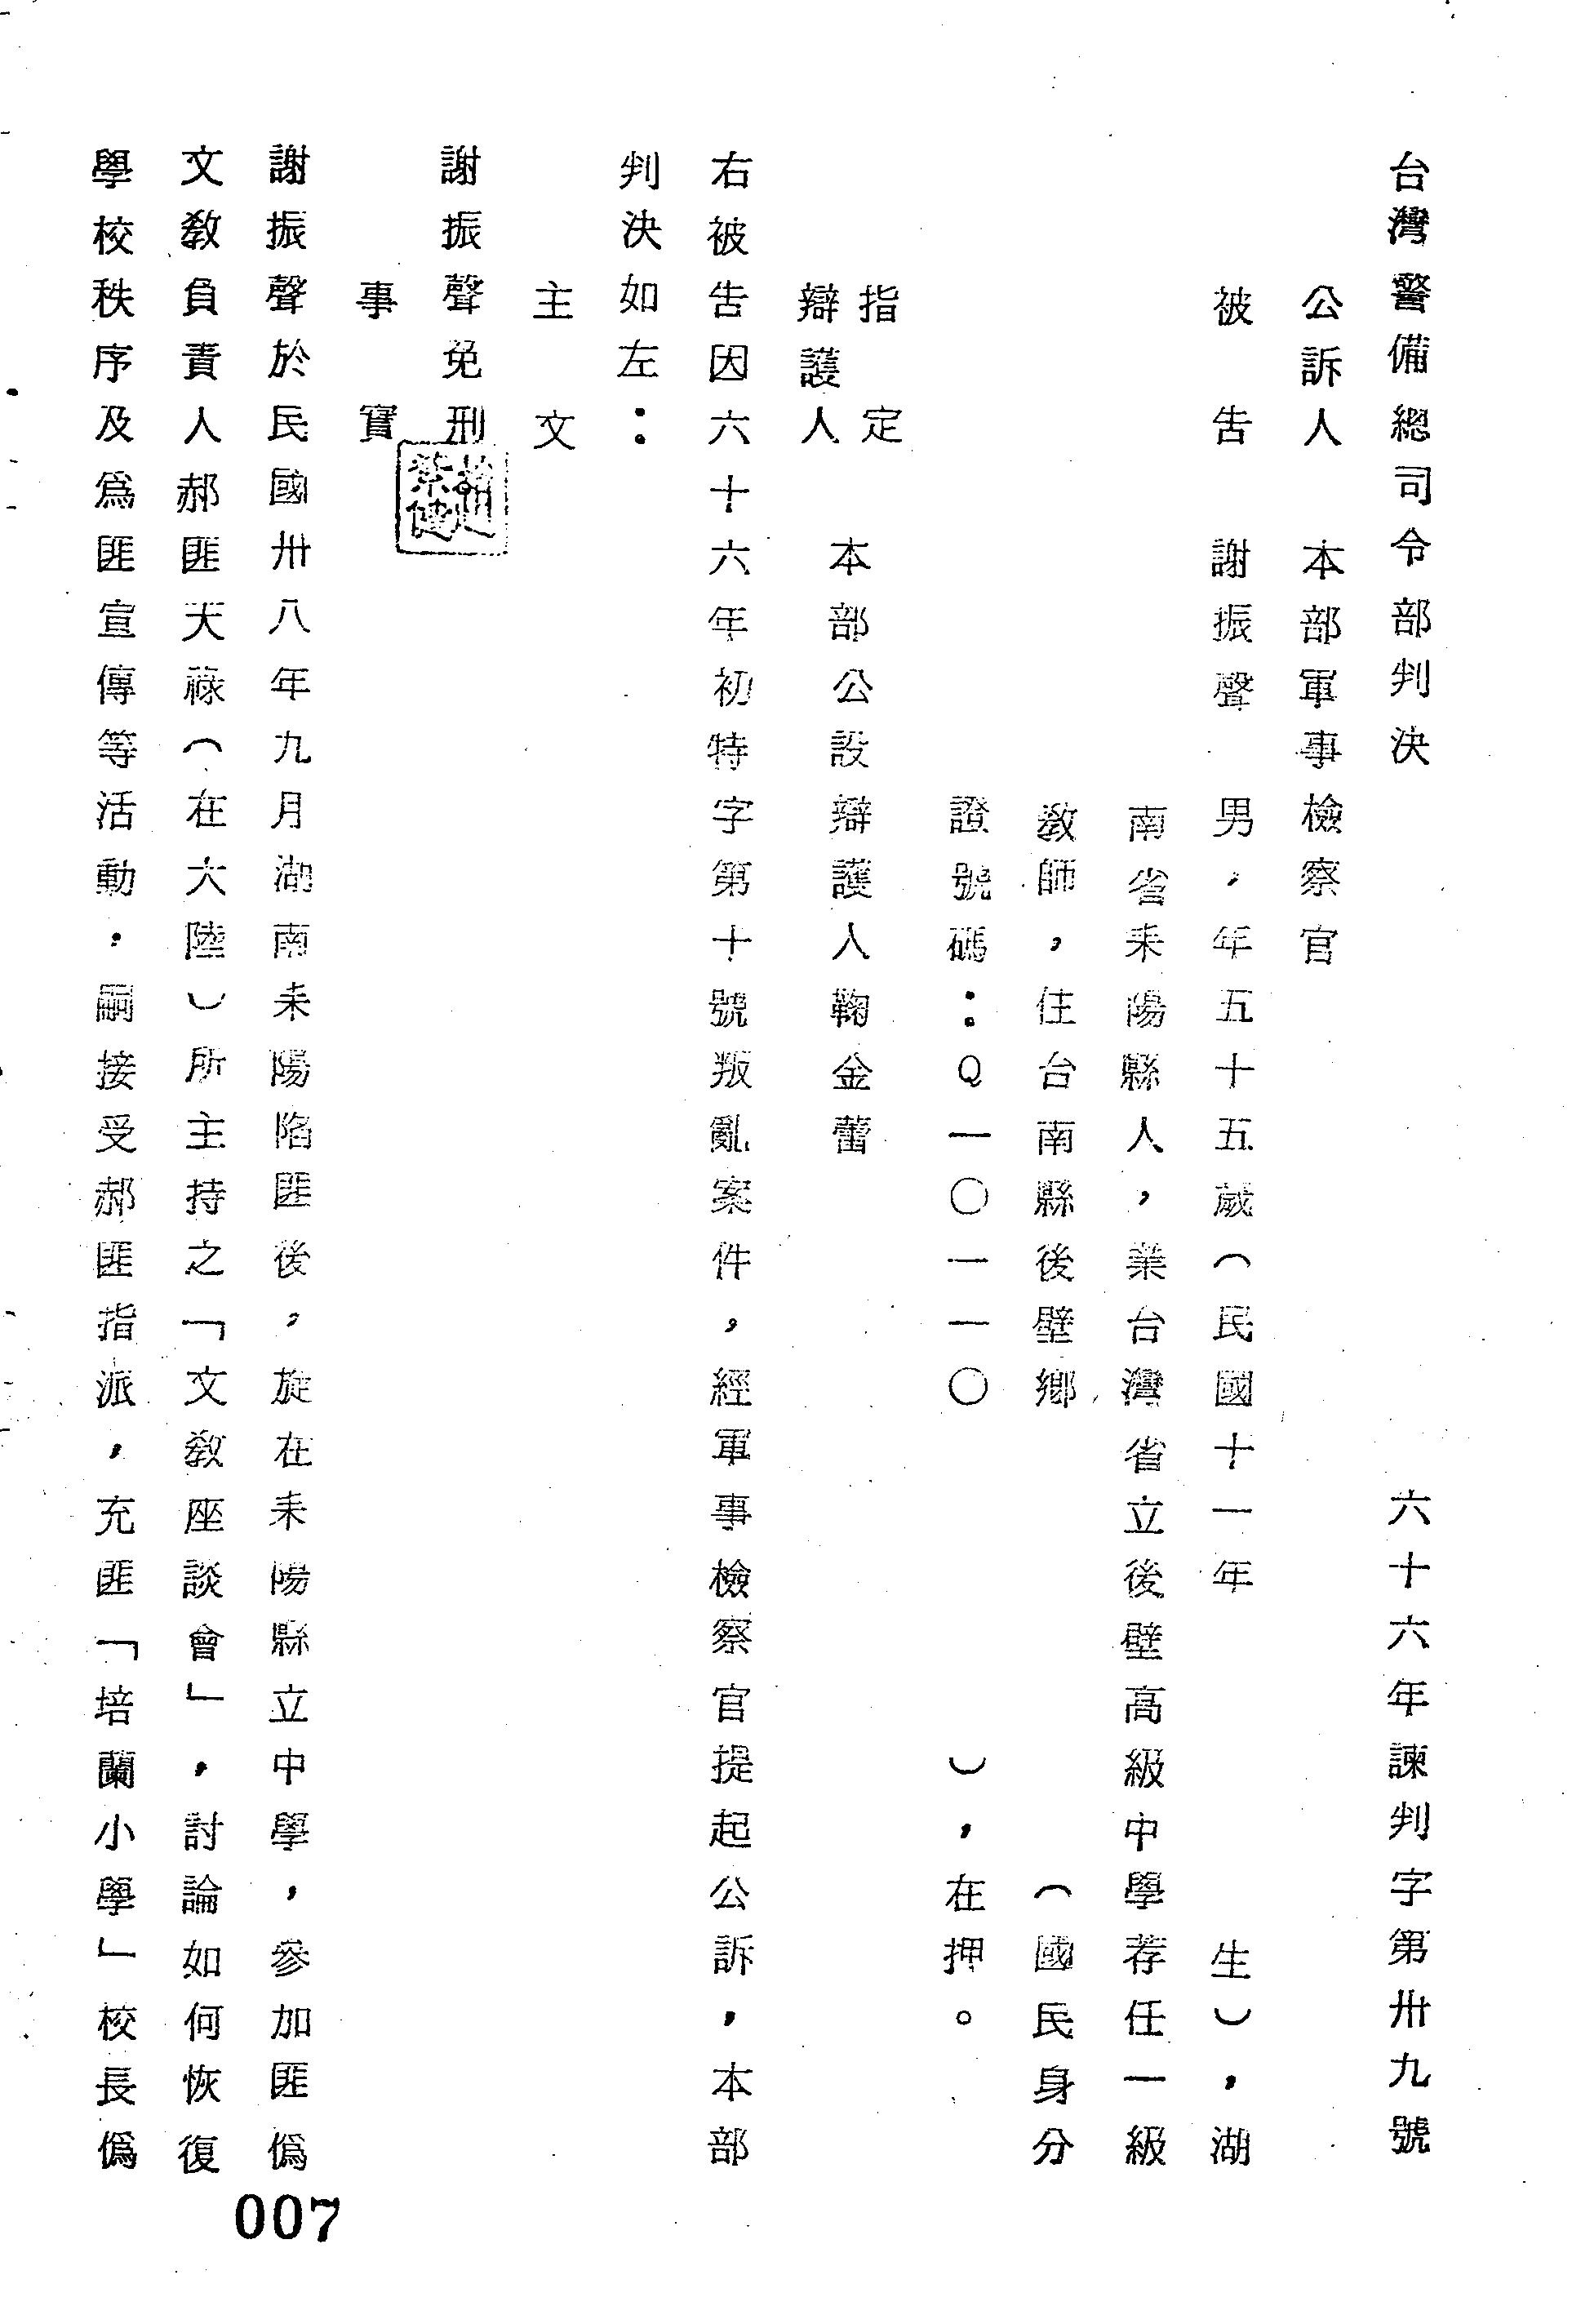 台灣警備總司令部判決　六十六年諫判字第卅九號
公訴人　本部軍事檢察官
被告　謝振聲　男，年五十五歲（民國十一年　生），湖
南省耒陽縣人，業台灣省立後壁高級中學荐任一級
教師，住台南縣後壁鄉　（國民身分
證號碼：Q一〇一一〇　），在押。
指定
辯護人　本部公設辯護人鞠金蕾
右被告因六十六年初特字第十號叛亂案件，經軍事檢察官提起公訴，本部
判決如左：
主文
謝振聲免刑
事實
謝振聲於民國卅八年九月湖南耒陽陷匪後，旋在耒陽縣立中學，參加匪偽
文教負責人郝匪天祿（在大陸）所主持之「文教座談會」，討論如何恢復
學校秩序及為匪宣傳等活動，嗣接受郝匪指派，充匪「培蘭小學」校長偽
007